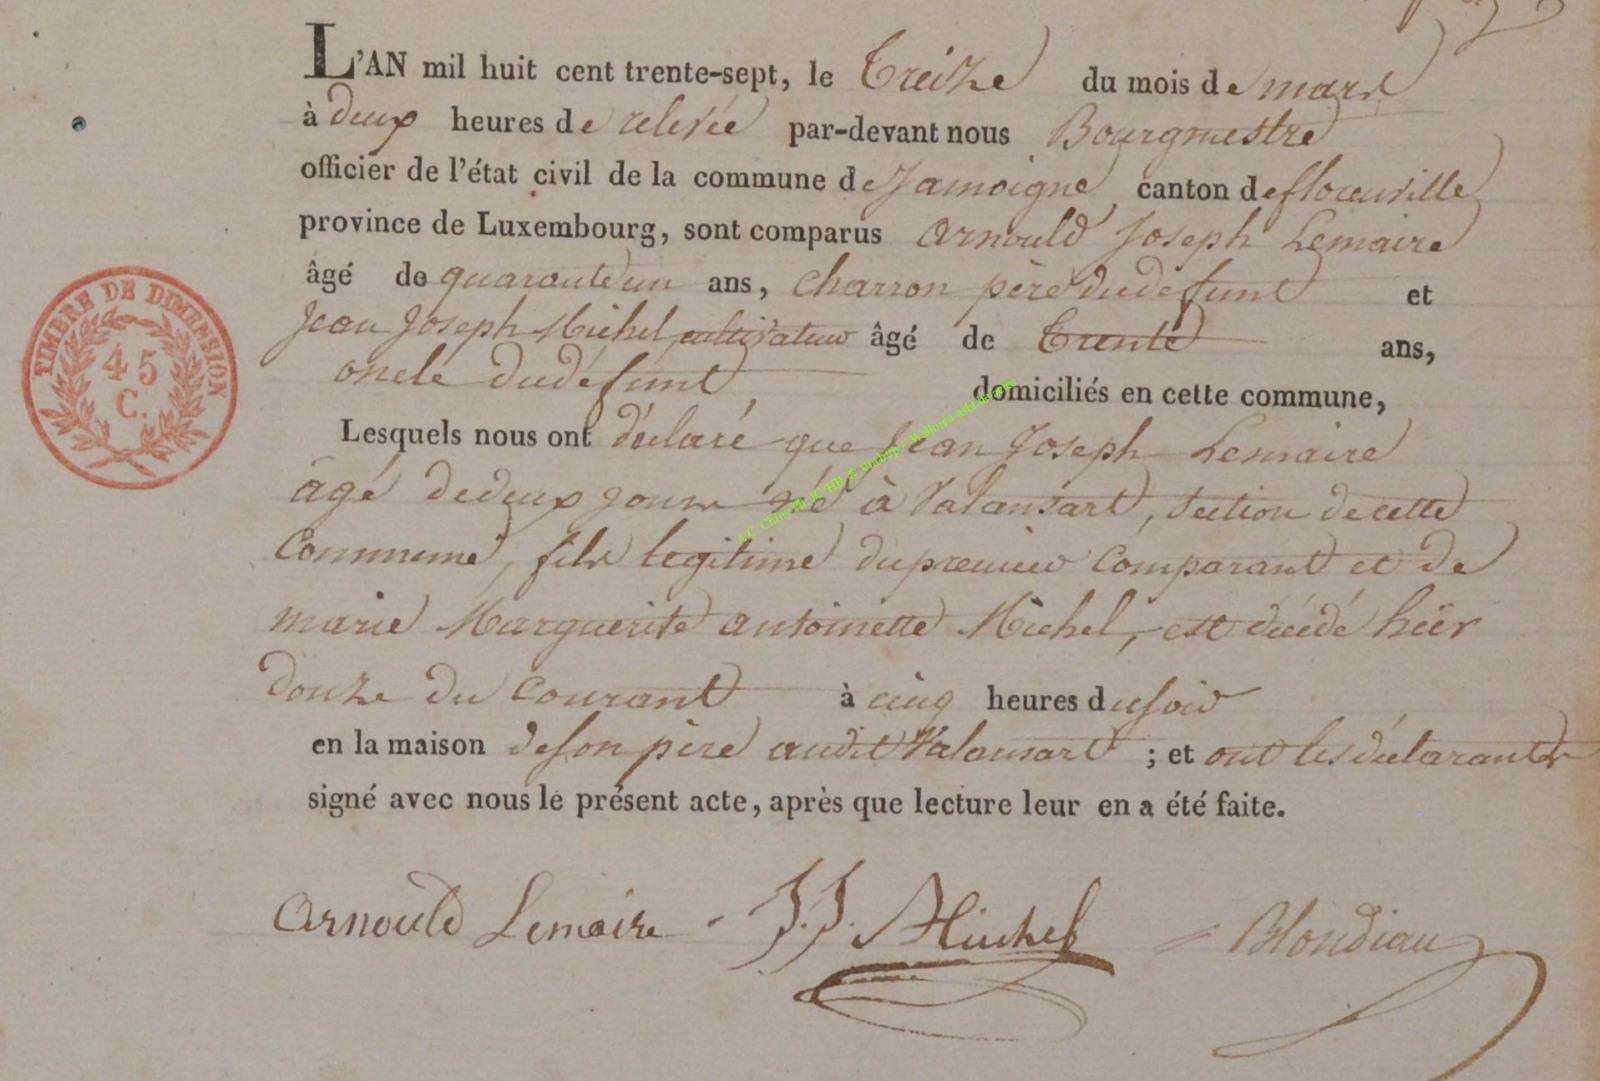 L'AN mil huit cent trente-sept, le Treize du mois de mars
à deux heures de relevée par-devant nous Bourgmestre
officier de l'état civil de la commune de Jamoigne canton de florenville
province de Luxembourg, sont comparus Arnould Joseph Lemaire
âgé de quarante un ans, charron père du défunt et
Jean Joseph Michel cultivateur âgé de Trente ans,
oncle du défunt domiciliés en cette commune,
Lesquels nous ont déclaré que Jean Joseph Lemaire
âgé de deux jours né à Valansart, section de cette
Commune, fils legitime du premier Comparant et de
marie Marguerite antoinette Michel, est décédé hier
douze du courant à cinq heures du soir
en la maison de son père audit Valansart ; et ont les déclarants
signé avec nous le présent acte, après que lecture leur en a été faite.
Arnould Lemaire - J. J. Michel Blondiau
TIMBRE DE DIMENSION
45
C.